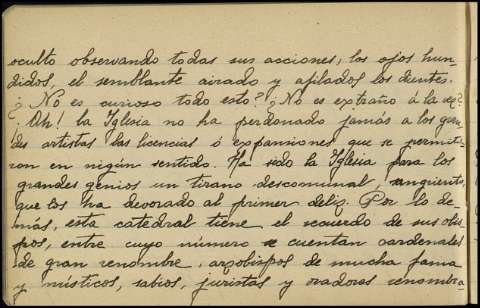 oculto observando todas sus acciones, los ojos hun-
didos, el semblante airado y afilados los dientes.
¿No es curioso todo esto? ¿No es extraño á la vez?
¡Oh! la Iglesia no ha perdonado jamás á los gran-
des artistas las licencias ó expansiones que se permitie-
ron en nigún sentido. Ha sido la Iglesia para los
grandes genios un tirano descomunal, sangriento,
que los ha devorado al primer desliz. Por lo de-
más, esta catedral tiene el recuerdo de sus obis-
pos, entre cuyo número se cuentan cardenales
de gran renombre, arzobispos de mucha fama
y místicos, sabios, juristas y oradores renombra